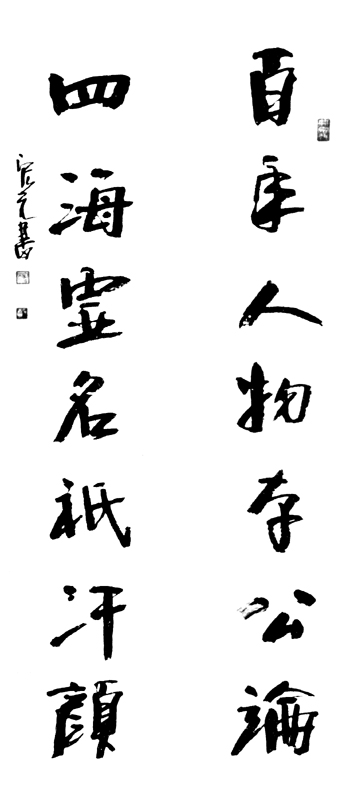 百年人物存公論
四海虛名祇汗顏